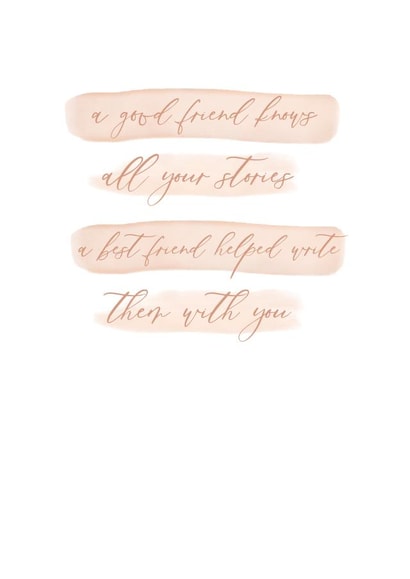 a good friend knows
all your stories
a best friend helped write
them with you